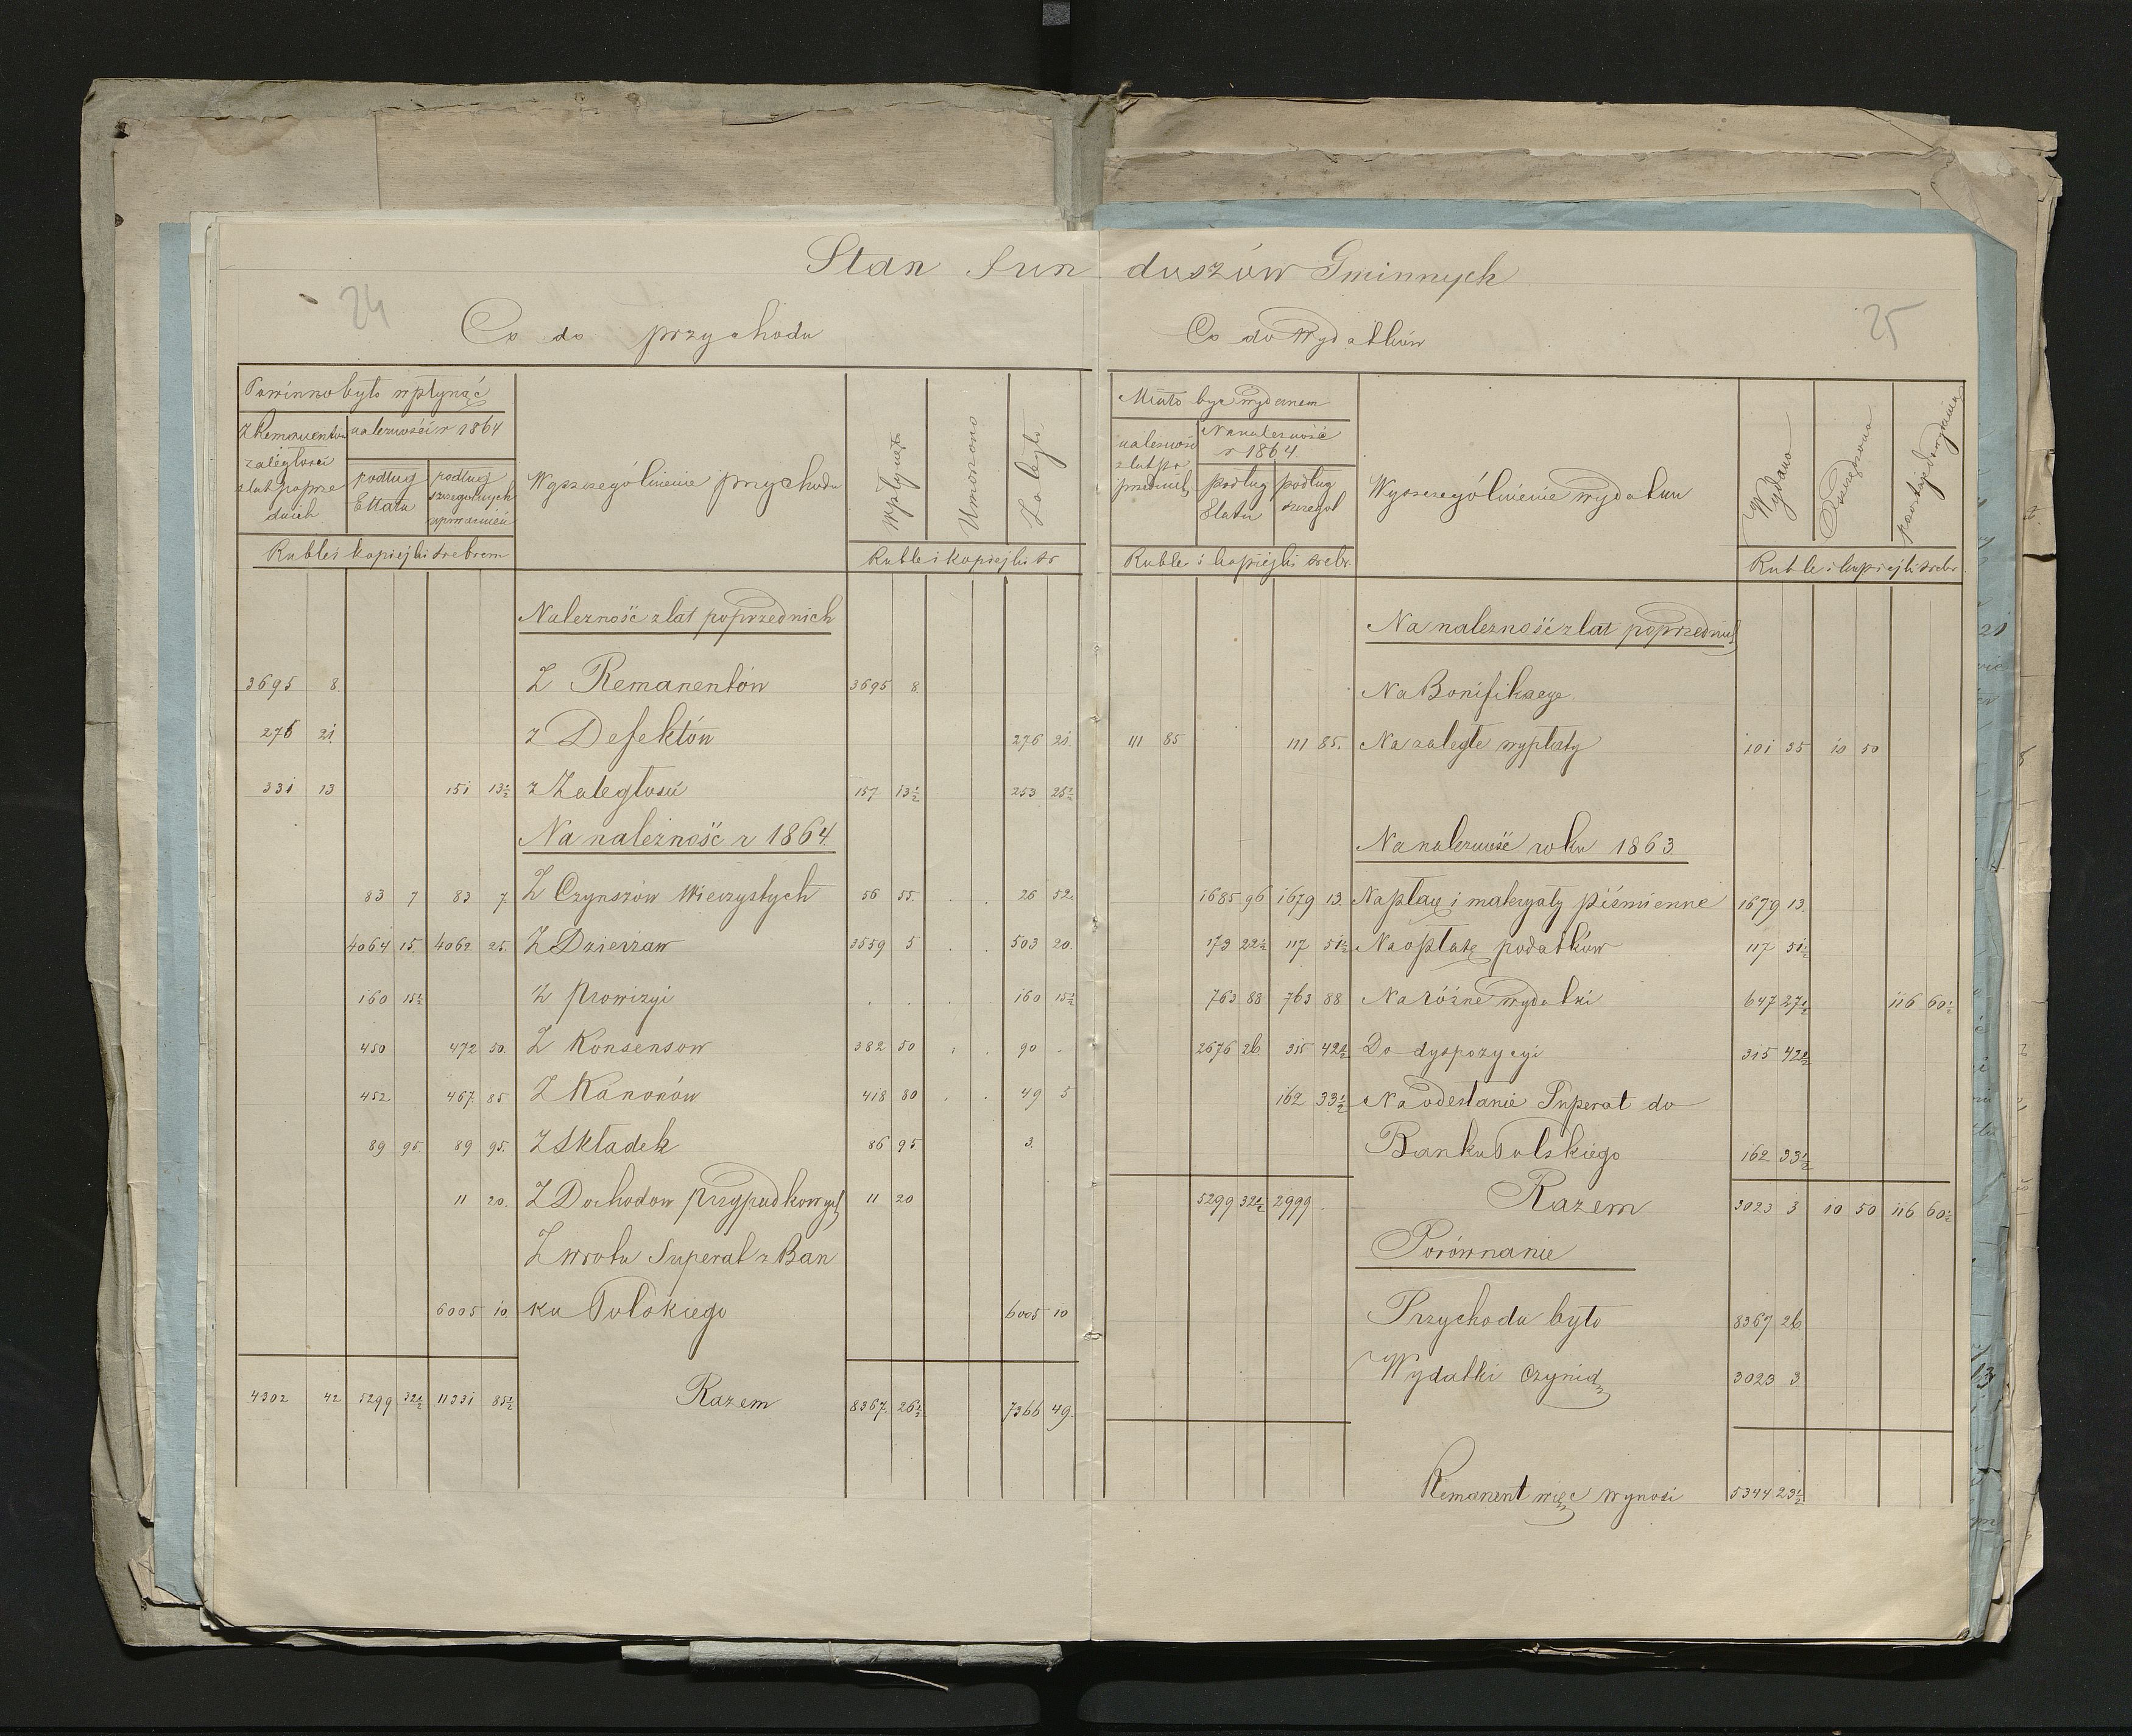 Stan Funduszów Gminnych
24
Co do przychodu
Powinno było wpłynąć
z Remanentów zaległości z lat poprzednich
należności r 1864
podług Ettatu
podług szczegółnych
Wyszczególnienie przychodu
Wpłynęło
Umorzono
Zaległo
Ruble i kopiejki srebrem
Ruble i kopiejki sr
Należność z lat poprzednich
3695 8. Z Remanentów 3695 8.
276 21. z Defektów 276 21.
331 13 151 13½ z Zaległości 157 13½ 253 25½
Na należność r 1864.
83 7 83 7. Z Czynszów Wieczystych 56 55. 26 52.
4064 15. 4062 25. Z Dzierżaw 3559 5 503 20.
160 15½ z Prowizyi 160 15½
450 472 50. Z Konsensow 382 50 90 -
452 467. 85 Z Kanonów 418 80 49 5
89 95. 89 95. Z Składek 86 95. 3.
11 20. Z Dochodow Przypadkowych 11 20
Zwrotu Superat z Ban
6005 10. ku Polskiego 6005 10
4302 42 5299 32½ 11331 85½ Razem 8367. 26½ 7366 49.
25
Co do Wydatków
Miało być wydanem
należność z lat poprzednich
Na należność r 1864
podług Etatu
podług szczegół
Wyszczególnienie wydatku
Wydano
Oszczędzono
pozostaje do wydania
Ruble i kopiejki srebr.
Ruble i kopiejki srebr
Na należność z lat poprzednich
Na Bonifikacye.
111 85 111 85. Na zaległe wypłaty 101 35 10 50
Na należność roku 1863
1685 96 1679 13. Na płacę i materyały piśmienne 1679 13.
173 22½ 117 51½ Na opłatę podatków 117 51½
763 88 763 88 Na różne wydatki 647 27½ 116 60½
2676 26 315 42½ Do dyspozycyi 315 42½
162 33½ Na odesłanie Superat do
Banku Polskiego 162 33½
5299 32½ 2999 Razem 3023 3 10 50 116 60½
Porównanie
Przychodu było 8367 26
Wydatki czynią 3023 3
Remanent więc wynosi 5344 23½